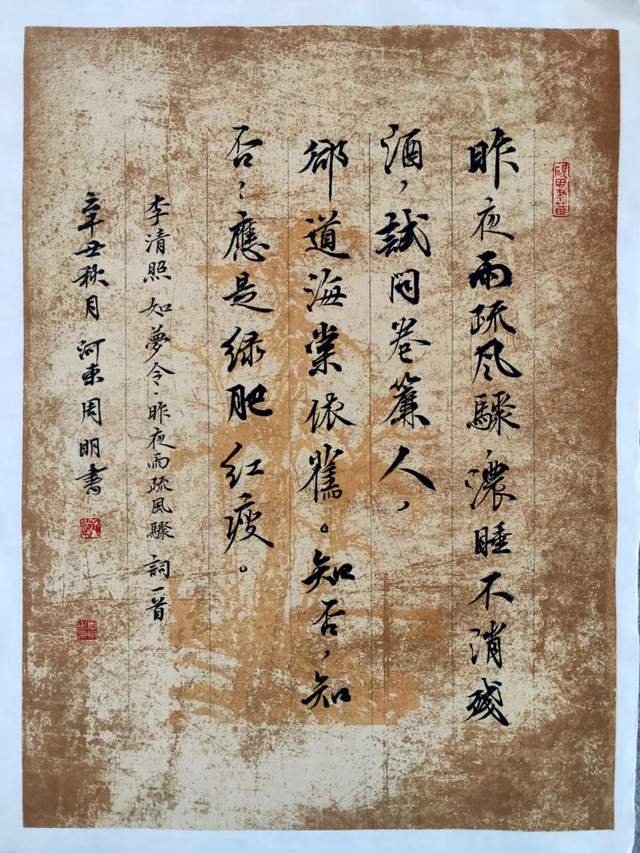 昨夜雨疏风驟，濃睡不消残
酒，試问卷簾人，
卻道海棠依舊。知否，知
否：應是绿肥红瘦。
李清照 如夢令·昨夜雨疏風驟 詞一首
辛丑秋月 河東周明書